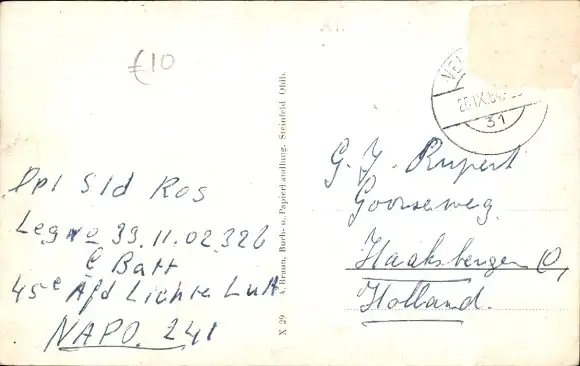 £10
Dpl Sld Ros
Leg no 39.11.02.326
C Batt
45e Afd Lichte Luft
NAPO. 241
X 29 A. Braun, Buch- u. Papierhandlung, Steinfeld Oldb.
31
G. J. Rupert
Goorseweg.
Haaksbergen O,
Holland.